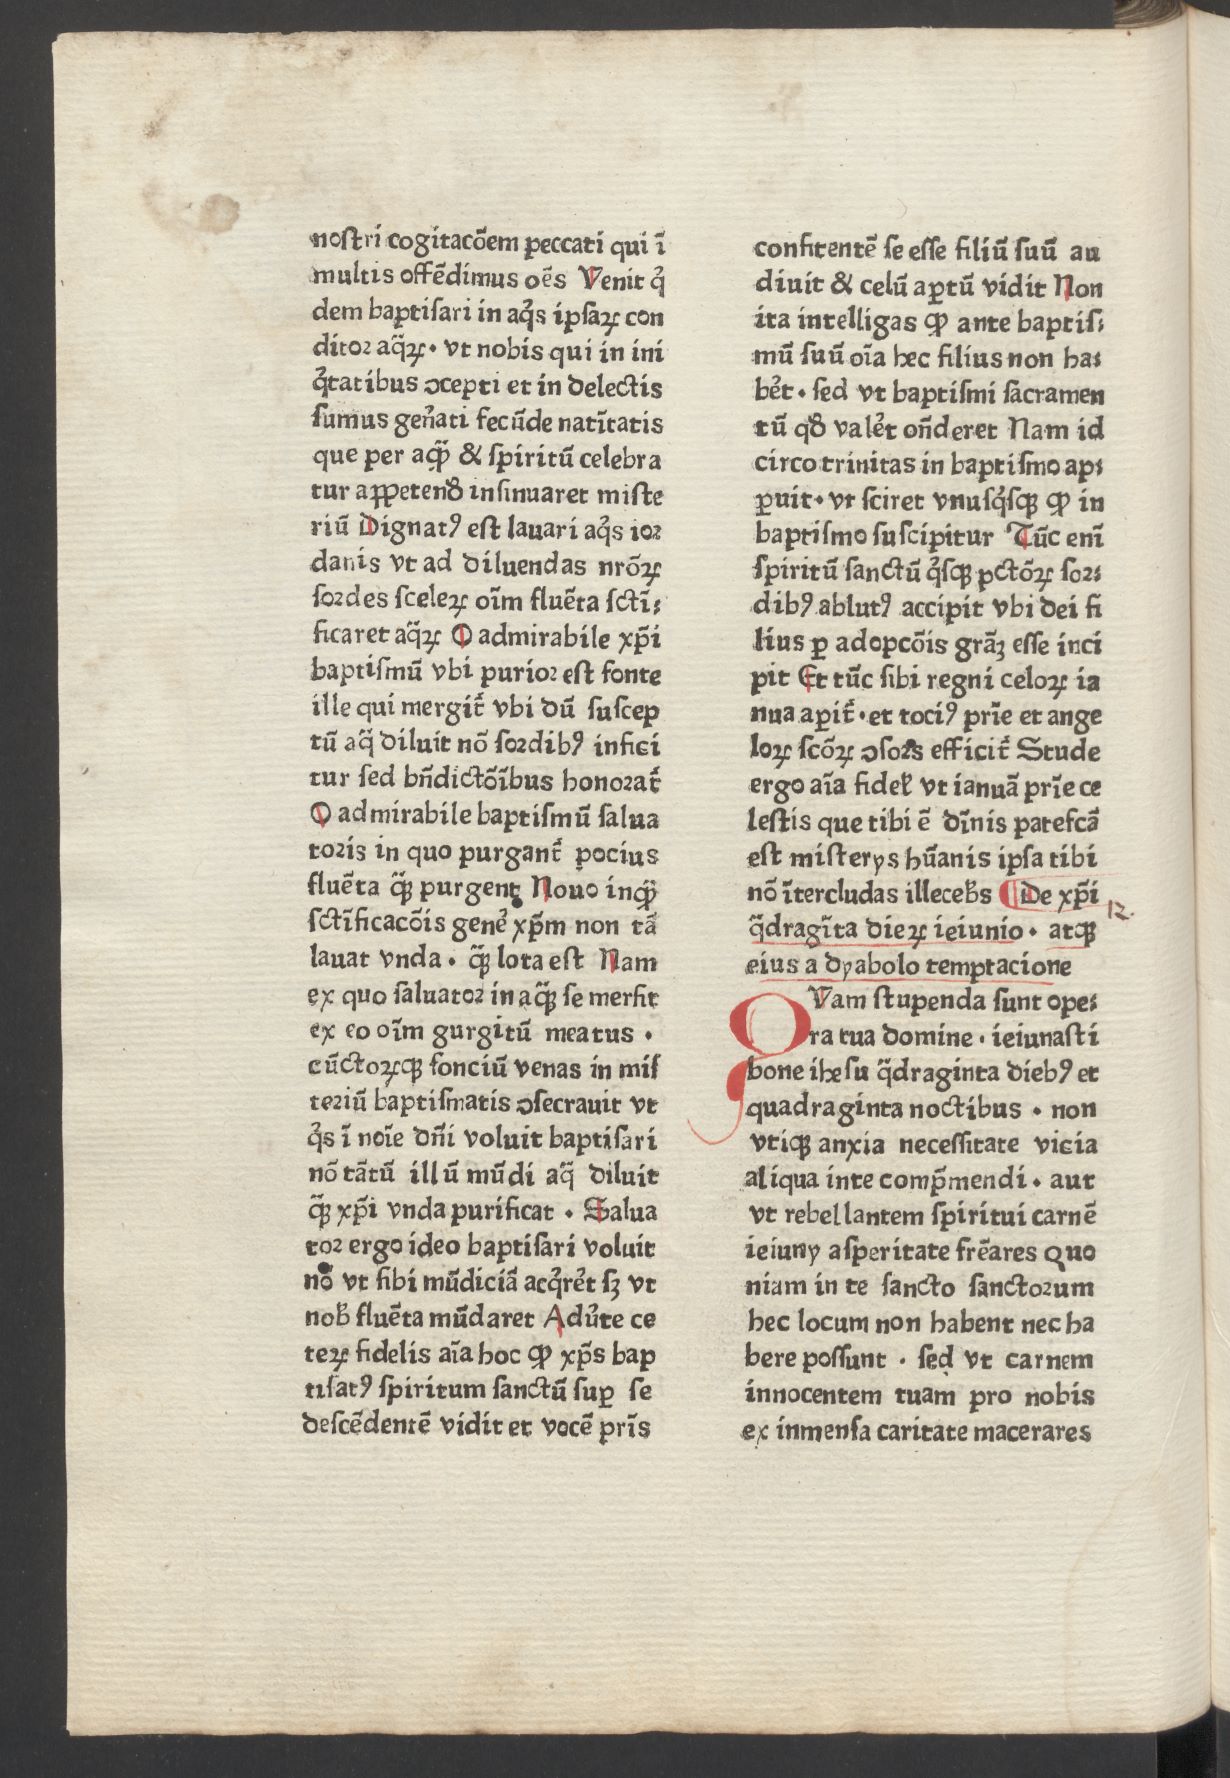 nostri cogitacõem peccati qui ĩ
multis offẽdimus oẽs Venit q̉
dem baptisari in aq̉s ipsaꝝ con
ditoꝛ aq̃ꝝ · vt nobis qui in ini
q̉tatibus ↄcepti et in delectis
sumus gen̉ati fecũde natĩtatis
que per aqꝫ̃ & spiritũ celebra
tur aꝑpetend̉ insinuaret miste
riũ Dignatꝰ est lavari aq̉s ioꝛ
danis vt ad diluendas nrõꝝ
soꝛdes sceleꝝ oĩm fluẽta sctĩ⸗
ficaret aq̃ꝝ O admirabile xp̃i
baptismũ vbi purioꝛ est fonte
ille qui mergit̃ vbi dũ suscep
tũ aq̃ diluit nõ soꝛdibꝰ infici
tur sed bñdictõĩbus honoꝛat̃
O admirabile baptismũ salua
toꝛis in quo purgant̃ pocius
fluẽta qꝫ̃ purgent Nouo inqꝫ̃
sctĩficacõis gen̉e xp̃m non tã
lauat vnda · qꝫ̃ lota est Nam
ex quo saluatoꝛ in aqꝫ̃ se mersit
ex eo oĩm gurgitũ meatus ·
cũctoꝝqꝫ fonciũ venas in mis
teriũ baptismatis ↄsecrauit vt
q̉s ĩ noĩe dñi voluit baptisari
nõ tãtũ illũ mũdi aq̃ diluit
qꝫ̃ xp̃i vnda purificat · Salua
toꝛ ergo ideo baptisari voluit
nõ vt sibi mũdiciã acq̉rẻt sꝫ vt
nob̉ fluẽta mũdaret Adủte ce
teꝝ fidelis aĩa hoc ꝙ xp̃s bap
tisatꝰ spiritum sanctũ suꝑ se
descẽdentẽ vidit et vocẽ pr̃is
confitentẽ se esse filiũ suũ au
diuit & celũ aꝑtũ vidit Non
ita intelligas ꝙ ante baptis⸗
mũ suũ oĩa hec filius non ha⸗
bẻt · sed vt baptismi sacramen
tũ qd̉ valẻt oñderet Nam id
circo trinitas in baptismo ap⸗
ꝑuit · vt sciret vnusq̉sqꝫ ꝙ in
baptismo suscipitur Tũc enĩ
spiritũ sanctũ q̉sqꝫ pctõꝝ soꝛ⸗
dibꝰ ablutꝰ accipit vbi dei fi
lius ꝑ adopcõis grãꝫ esse inci
pit Et tũc sibi regni celoꝝ ia
nua aꝑit̃ · et tociꝰ pr̃ie et ange
loꝝ scõꝝ ↄsoꝛs efficit̃ Stude
ergo aĩa fidel̉ vt ianuã pr̃ie ce
lestis que tibi ẽ dĩnis patefcã
est misterys hũanis ipsa tibi
nõ ĩtercludas illeceb̉s De xp̃i
q̃dragĩta dieꝝ ieiunio · atqꝫ 12.
eius a dyabolo temptacione
QVam stupenda sunt ope⸗
ra tua domine · ieiunasti
bone ihesu q̃draginta diebꝰ et
quadraginta noctibus · non
vtiqꝫ anxia necessitate vicia
aliqua inte comp̃mendi · aut
vt rebellantem spiritui carnẽ
ieiuny asperitate frẽares Quo
niam in te sancto sanctoꝛum
hec locum non habent nec ha
bere possunt · sed vt carnem
innocentem tuam pro nobis
ex inmensa caritate macerares